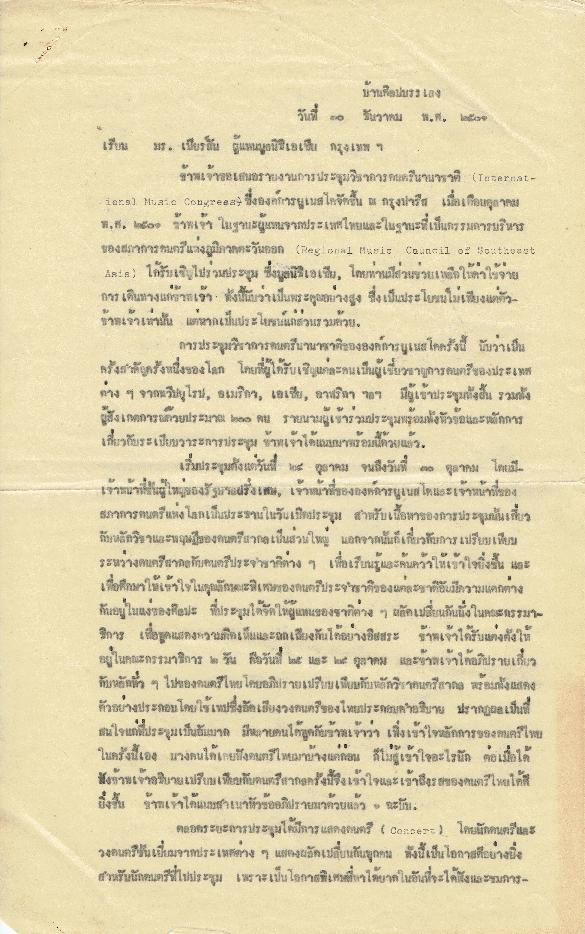 บ้านศิลปบรรเลง
วันที่ ๑๐ ธันวาคม พ.ศ. ๒๕๐๑
เรียน มร. เบียรสัน ผู้แทนมูลนิธิเอเซีย กรุงเทพ ฯ
ข้าพเจ้าขอเสนอรายงานการประชุมวิชาการดนตรีนานาชาติ (Internat-
ional Music Congress) ซึ่งองค์การยูเนสโคจัดขึ้น ณ กรุงปารีส เมื่อเดือนตุลาคม
พ.ศ. ๒๕๐๑ ข้าพเจ้า ในฐานะผู้แทนจากประเทศไทยและในฐานะที่เป็นกรรมการบริหาร
ของสภาการดนตรีแห่งภูมิภาคตะวันออก (Regional Music Council of Southeast
Asia) ได้รับเชิญไปร่วมประชุม ซึ่งมูลนิธิเอเซีย, โดยท่านมีส่วนช่วยเหลือให้ค่าใช้จ่าย
การเดินทางแก่ข้าพเจ้า ทั้งนี้นับว่าเป็นพระคุณอย่างสูง ซึ่งเป็นประโยชน์ไม่เพียงแต่ตัว-
ข้าพเจ้าเท่านั้น แต่หากเป็นประโยชน์แก่ส่วนรวมด้วย.
การประชุมวิชาการดนตรีนานาชาติขององค์การยูเนสโคครั้งนี้ นับว่าเป็น
ครั้งสำคัญครั้งหนึ่งของโลก โดยที่ผู้ได้รับเชิญแต่ละคนเป็นผู้เชี่ยวชาญการดนตรีของประเทศ
ต่าง ๆ จากทวีปยุโรป, อเมริกา, เอเซีย, อาฟริกา ฯลฯ มีผู้เข้าประชุมทั้งสิ้น รวมทั้ง
ผู้สังเกตการณ์ด้วยประมาณ ๒๐๐ คน รายนามผู้เข้าร่วมประชุมพร้อมทั้งหัวข้อและหลักการ
เกี่ยวกับระเบียบวาระการประชุม ข้าพเจ้าได้แนบมาพร้อมนี้ด้วยแล้ว.
เริ่มประชุมตั้งแต่วันที่ ๒๔ ตุลาคม จนถึงวันที่ ๓๐ ตุลาคม โดยมี-
เจ้าหน้าที่ชั้นผู้ใหญ่ของรัฐบาลฝรั่งเศส, เจ้าหน้าที่ขององค์การยูเนสโคและเจ้าหน้าที่ของ
สภาการดนตรีแห่งโลกเป็นประธานในวันเปิดประชุม สำหรับเนื้อหาของการประชุมนั้นเกี่ยว
กับหลักวิชาและทฤษฎีของดนตรีสากลเป็นส่วนใหญ่ นอกจากนั้นก็เกี่ยวกับการเปรียบเทียบ
ระหว่างดนตรีสากลกับดนตรีประจำชาติต่าง ๆ เพื่อเรียนรู้และค้นคว้าให้เข้าใจยิ่งขึ้น และ
เพื่อศึกษาให้เข้าใจในคุณลักษณะพิเศษของดนตรีประจำชาติของแต่ละชาติอันมีความแตกต่าง
กันอยู่ในแง่ของศิลปะ ที่ประชุมได้จัดให้ผู้แทนของชาติต่าง ๆ ผลัดเปลี่ยนกันนั่งในคณะกรรมา-
ธิการ เพื่อพูดแสดงความคิดเห็นและถกเถียงกันได้อย่างอิสสระ ข้าพเจ้าได้รับแต่งตั้งให้
อยู่ในคณะกรรมาธิการ ๒ วัน คือวันที่ ๒๕ และ ๒๙ ตุลาคม และข้าพเจ้าได้อภิปรายเกี่ยว
กับหลักทั่ว ๆ ไปของดนตรีไทยโดยอภิปรายเปรียบเทียบกับหลักวิชาดนตรีสากล พร้อมทั้งแสดง
ตัวอย่างประกอบโดยใช้เทปซึ่งอัดเสียงวงดนตรีของไทยประกอบคำอธิบาย ปรากฏผลเป็นที่
สนใจแก่ที่ประชุมเป็นอันมาก มีหลายคนได้พูดกับข้าพเจ้าว่า เพิ่งเข้าใจหลักการของดนตรีไทย
ในครั้งนี้เอง บางคนได้เคยฟังดนตรีไทยมาบ้างแต่ก่อน ก็ไม่สู้เข้าใจอะไรนัก ต่อเมื่อได้
ฟังข้าพเจ้าอธิบายเปรียบเทียบกับดนตรีสากลครั้งนี้จึงเข้าใจและเข้าถึงรสของดนตรีไทยได้ดี
ยิ่งขึ้น ข้าพเจ้าได้แนบสำเนาหัวข้ออภิปรายมาด้วยแล้ว ๑ ฉะบับ.
ตลอดระยะการประชุมได้มีการแสดงดนตรี (Concert) โดยนักดนตรีและ
วงดนตรีชั้นเยี่ยมจากประเทศต่าง ๆ แสดงผลัดเปลี่ยนกันทุกคืน ทั้งนี้เป็นโอกาสดีอย่างยิ่ง
สำหรับนักดนตรีที่ไปประชุม เพราะเป็นโอกาสพิเศษที่หาได้ยากในอันที่จะได้ฟังและชมการ-